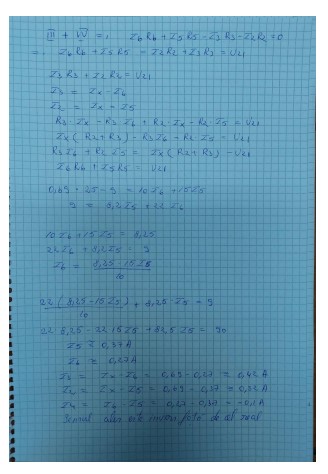 III + IV => I6 R6 + I5 R5 - I3 R3 - I2 R2 = 0
=> I6 R6 + I5 R5 = I2 R2 + I3 R3 = U21
I3 R3 + I2 R2 = U21
I3 = Ix - I6
I2 = Ix - I5
R3 · Ix - R3 · I6 + R2 · Ix - R2 · I5 = U21
Ix ( R2 + R3 ) - R3 I6 - R2 I5 = U21
R3 I6 + R2 I5 = Ix ( R2 + R3 ) - U21
I6 R6 + I5 R5 = U21
0,69 · 25 - 9 = 10 I6 + 15 I5
9 = 8,2 I5 + 22 I6
10 I6 + 15 I5 = 8,25
22 I6 + 8,2 I5 = 9
I6 = 8,25 - 15 I5
10
22 ( 8,25 - 15 I5 ) + 8,25 · I5 = 9
10
22 · 8,25 - 22 · 15 I5 + 82,5 I5 = 90
I5 = 0,37 A
I6 = 0,27 A
I3 = Ix - I6 = 0,69 - 0,27 = 0,42 A
I2 = Ix - I5 = 0,69 - 0,37 = 0,32 A
I4 = I6 - I5 = 0,27 - 0,37 = -0,1 A
Sensul ales este invers față de cel real